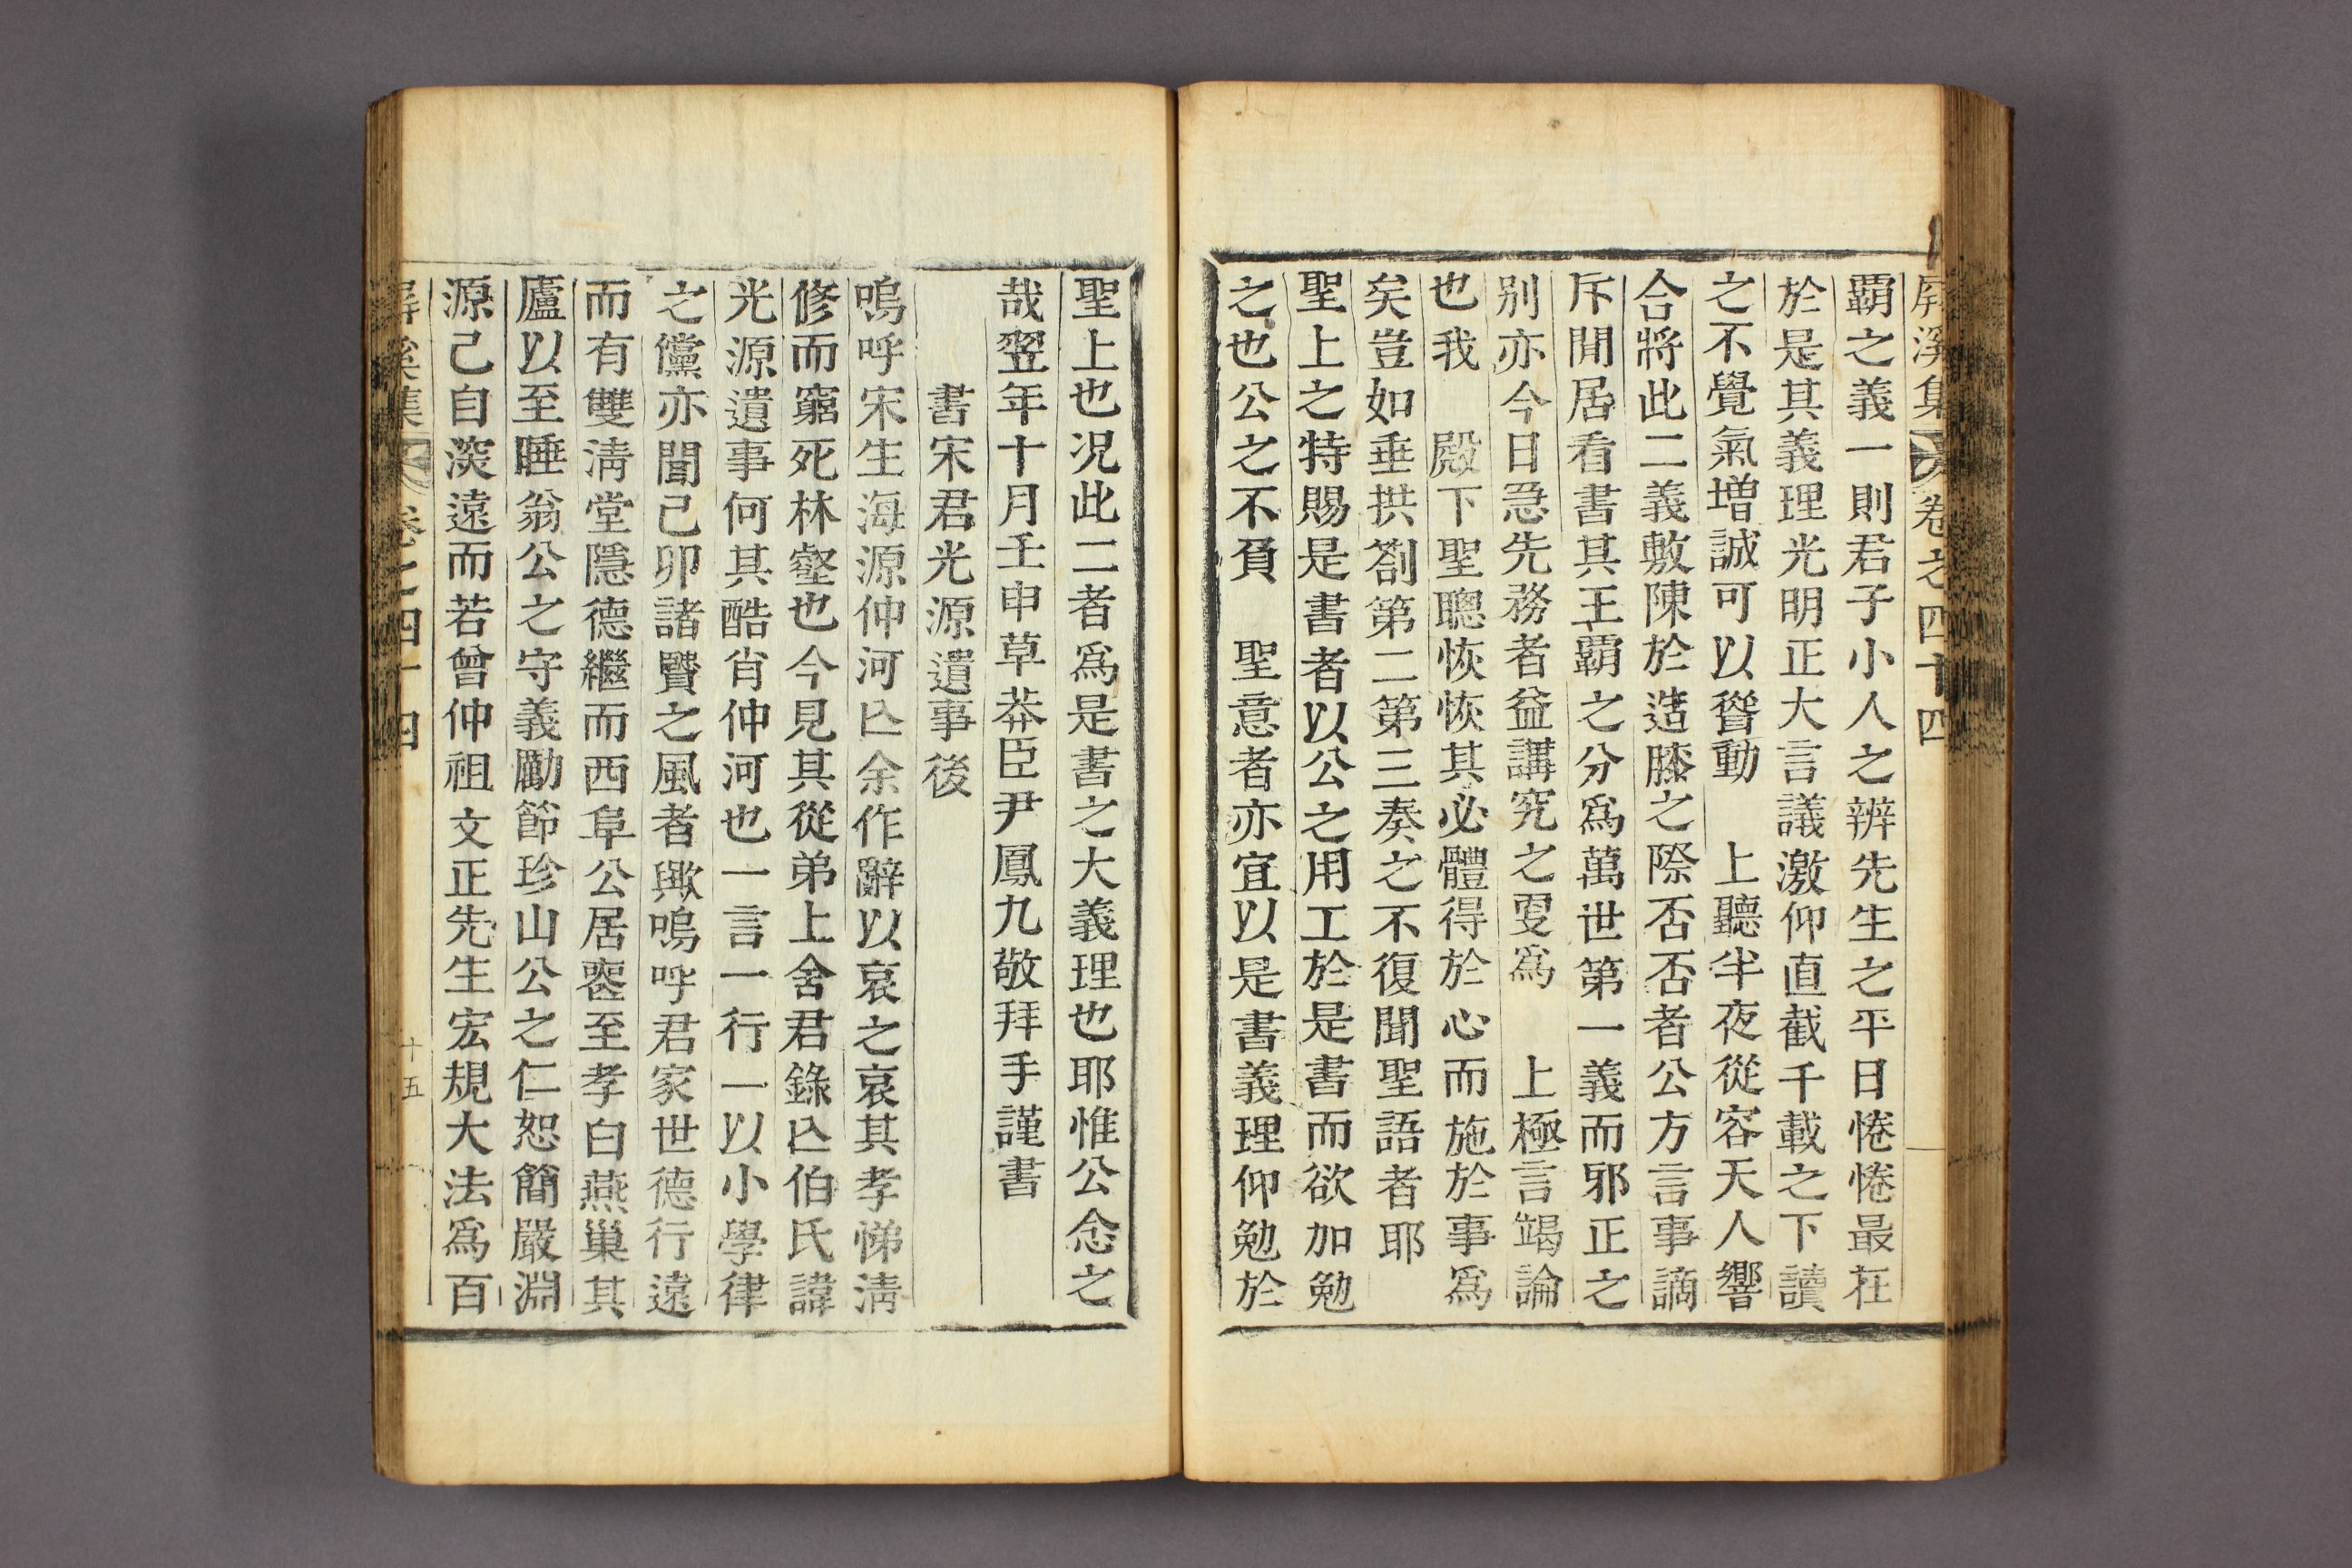 屛溪集 卷之四十四
霸之義一則君子小人之辨先生之平日惓惓最在
於是其義理光明正大言議激仰直截千載之下讀
之不覺氣增誠可以聳動 上聽半夜從容天人響
合將此二義敷陳於造膝之際否否者公方言事謫
斥閒居看書其王霸之分爲萬世第一義而邪正之
別亦今日急先務者益講究之要爲 上極言竭論
也我 殿下聖聰恢恢其必體得於心而施於事爲
矣豈如垂拱劄第二第三奏之不復聞聖語者耶
聖上之特賜是書者以公之用工於是書而欲加勉
之也公之不負 聖意者亦宜以是書義理仰勉於
聖上也况此二者爲是書之大義理也耶惟公念之
哉翌年十月壬申草莽臣尹鳳九敬拜手謹書
書宋君光源遺事後
嗚呼宋生海源仲河亡余作辭以哀之哀其孝悌淸
修而窮死林壑也今見其從弟上舍君錄亡伯氏諱
光源遺事何其酷肖仲河也一言一行一以小學律
之儻亦聞己卯諸賢之風者歟嗚呼君家世德行遠
而有雙淸堂隱德繼而西阜公居喪至孝白燕巢其
廬以至睡翁公之守義勵節珍山公之仁恕簡嚴淵
源己自深遠而若曾仲祖文正先生宏規大法爲百
屛溪集 卷之四十四 十五